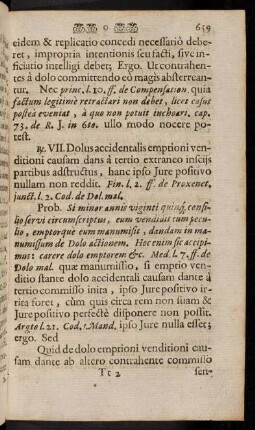 o 659
eidem & replicatio concedi necessariò debe-
ret, impropria intentionis seu facti, sive in-
ficiatio intelligi debet; Ergo. Ut contrahen-
tes à dolo committendo eò magis absterrean-
tur. Nec princ. l. 10. ff. de Compensation. quia
factum legitimè retractari non debet, licet casus
postea eveniat, à quo non potuit inchoari. cap.
73. de R. J. in 6to. ullo modo nocere po-
test.
VII. Dolus accidentalis emptioni ven-
ditioni causam dans à tertio extraneo insciis
partibus adstructus, hanc ipso Jure positivo
nullam non reddit. Fin. l. 2. ff. de Proxenet.
junct. l. 2. Cod. de Dol. mal.
Prob. Si minor annis viginti quinq; consi-
lio servi circumscriptus, eum vendidit cum pecu-
lio, emptorque eum manumisit, dandam in ma-
numissum de Dolo actionem. Hoc enim sic accipi-
mus: carere dolo emptorem &c. Med. l. 7. ff. de
Dolo mal. quæ manumissio, si emptio ven-
ditio stante dolo accidentali causam dante à
tertio commisso inita, ipso Jure positivo ir-
rita foret, cùm quis circa rem non suam &
Jure positivo perfectè disponere non possit.
Argto l. 21. Cod. Mand. ipso Jure nulla esset;
ergo. Sed
Quid de dolo emptioni venditioni cau-
sam dante ab altero contrahente commisso
Tt 2 sen-